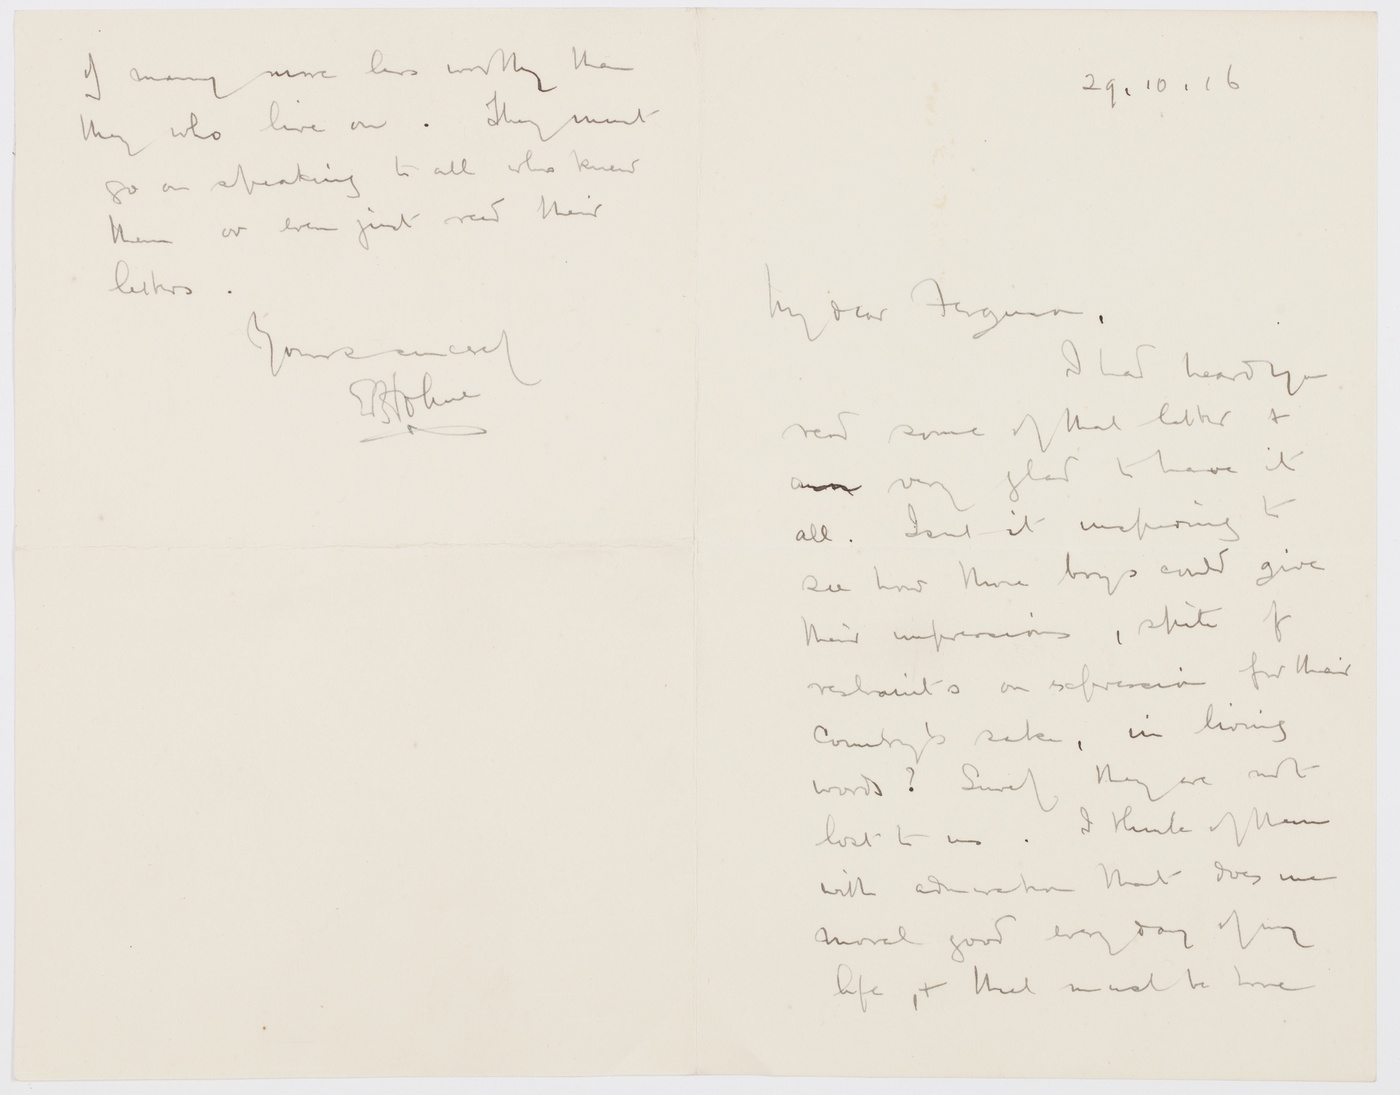 29.10.16
My dear Ferguson,
I had heard you
read some of that letter &
am very glad to have it
all. Isnt it inspiring to
see how those boys could give
their impressions, spite of
restraints on expression for their
Country's sake, in living
words? Surely they are not
lost to us. I think of them
with admiration that does me
moral good every day of my
life, & that must be true
of many more less worthy than
they who live on. They must
go on speaking to all who knew
them or even just read their
letters.
Yours sincerely